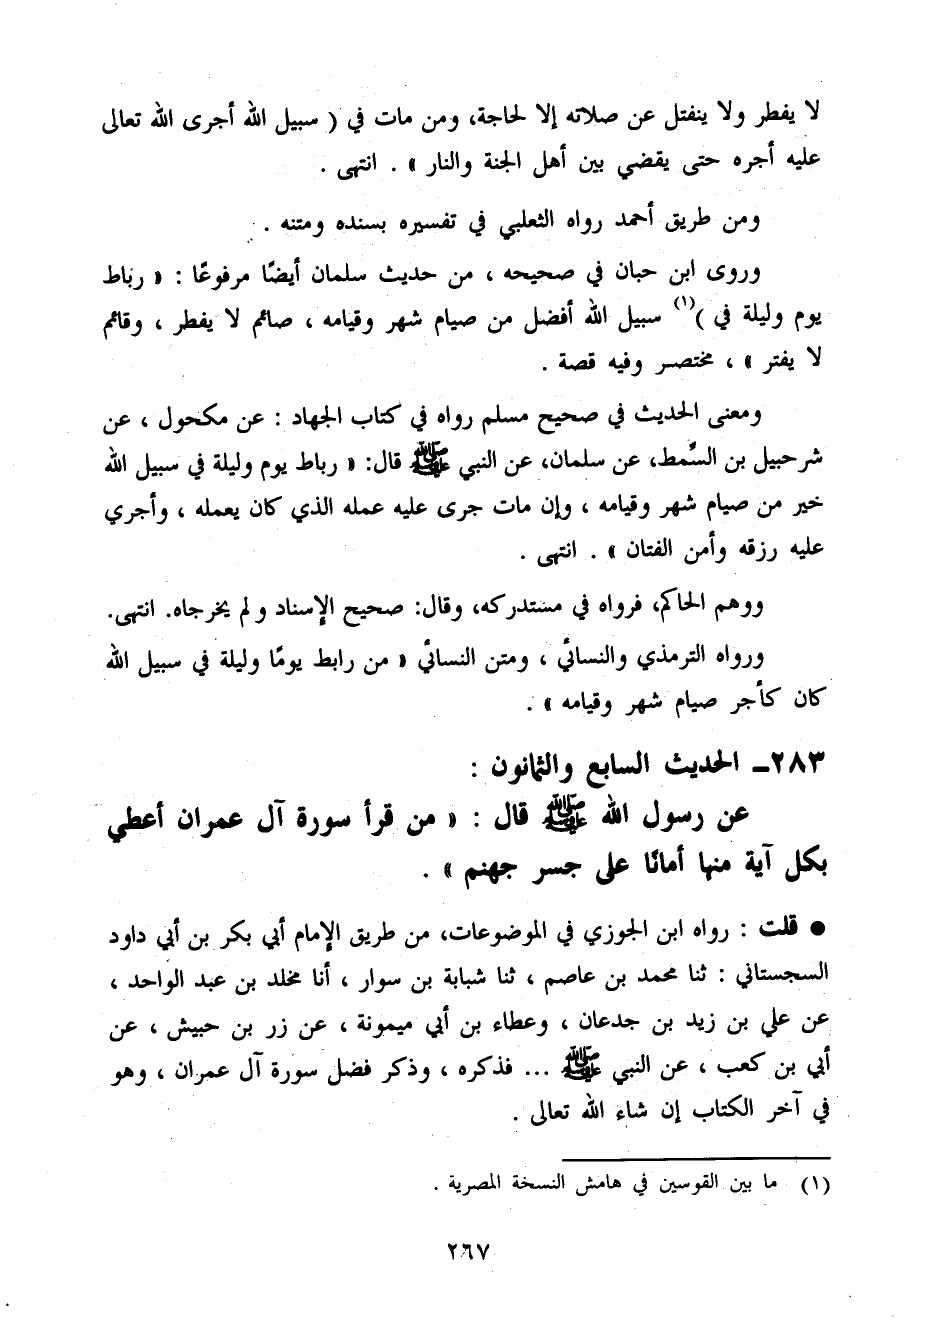 لا يفطر ولا ينفتل عن صلاته إلا لحاجة، ومن مات في ( سبيل الله أجرى الله تعالى
عليه أجره حتى يقضي بين أهل الجنة والنار » . انتهى .
ومن طريق أحمد رواه الثعلبي في تفسيره بسنده ومتنه .
وروى ابن حبان في صحيحه ، من حديث سلمان أيضًا مرفوعًا : « رباط
يوم وليلة في )(١) سبيل الله أفضل من صيام شهر وقيامه ، صائم لا يفطر ، وقائم
لا يفتر » ، مختصر وفيه قصة .
ومعنى الحديث في صحيح مسلم رواه في كتاب الجهاد : عن مكحول ، عن
شرحبيل بن السِّمط، عن سلمان، عن النبي ﷺ قال: « رباط يوم وليلة في سبيل الله
خير من صيام شهر وقيامه ، وإن مات جرى عليه عمله الذي كان يعمله ، وأجري
عليه رزقه وأمن الفتان » . انتهى .
ووهم الحاكم، فرواه في مستدركه، وقال: صحيح الإسناد ولم يخرجاه. انتهى.
ورواه الترمذي والنسائي ، ومتن النسائي « من رابط يومًا وليلة في سبيل الله
كان كأجر صيام شهر وقيامه » .
٢٨٣ـ الحديث السابع والثمانون :
عن رسول الله ﷺ قال : « من قرأ سورة آل عمران أعطي
بكل آية منها أمانًا على جسر جهنم » .
● قلت : رواه ابن الجوزي في الموضوعات، من طريق الإمام أبي بكر بن أبي داود
السجستاني : ثنا محمد بن عاصم ، ثنا شبابة بن سوار ، أنا مخلد بن عبد الواحد ،
عن علي بن زيد بن جدعان ، وعطاء بن أبي ميمونة ، عن زر بن حبيش ، عن
أبي بن كعب ، عن النبي ﷺ ... فذكره ، وذكر فضل سورة آل عمران ، وهو
في آخر الكتاب إن شاء الله تعالى .
(١) ما بين القوسين في هامش النسخة المصرية .
٢٦٧